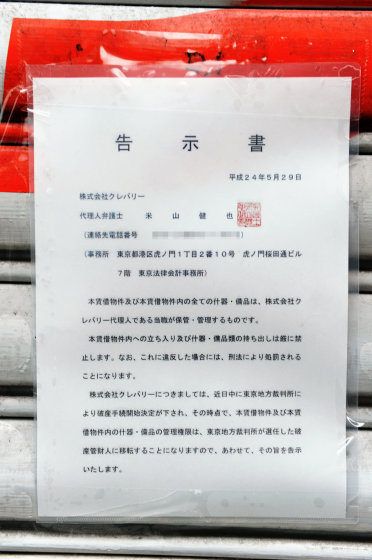 告示書
平成24年5月29日
株式会社クレバリー
代理人弁護士 米山健也
(連絡先電話番号
(事務所 東京都港区虎ノ門1丁目2番10号 虎ノ門桜田通ビル
7階 東京法律会計事務所)
本賃借物件及び本賃借物件内の全ての什器・備品は、株式会社ク
レバリー代理人である当職が保管・管理するものです。
本賃借物件内への立ち入り及び什器・備品類の持ち出しは厳に禁
止します。なお、これに違反した場合には、刑法により処罰される
ことになります。
株式会社クレバリーにつきましては、近日中に東京地方裁判所に
より破産手続開始決定が下され、その時点で、本賃借物件及び本賃
借物件内の什器・備品の管理権限は、東京地方裁判所が選任した破
産管財人に移転することになりますので、あわせて、その旨を告示
いたします。